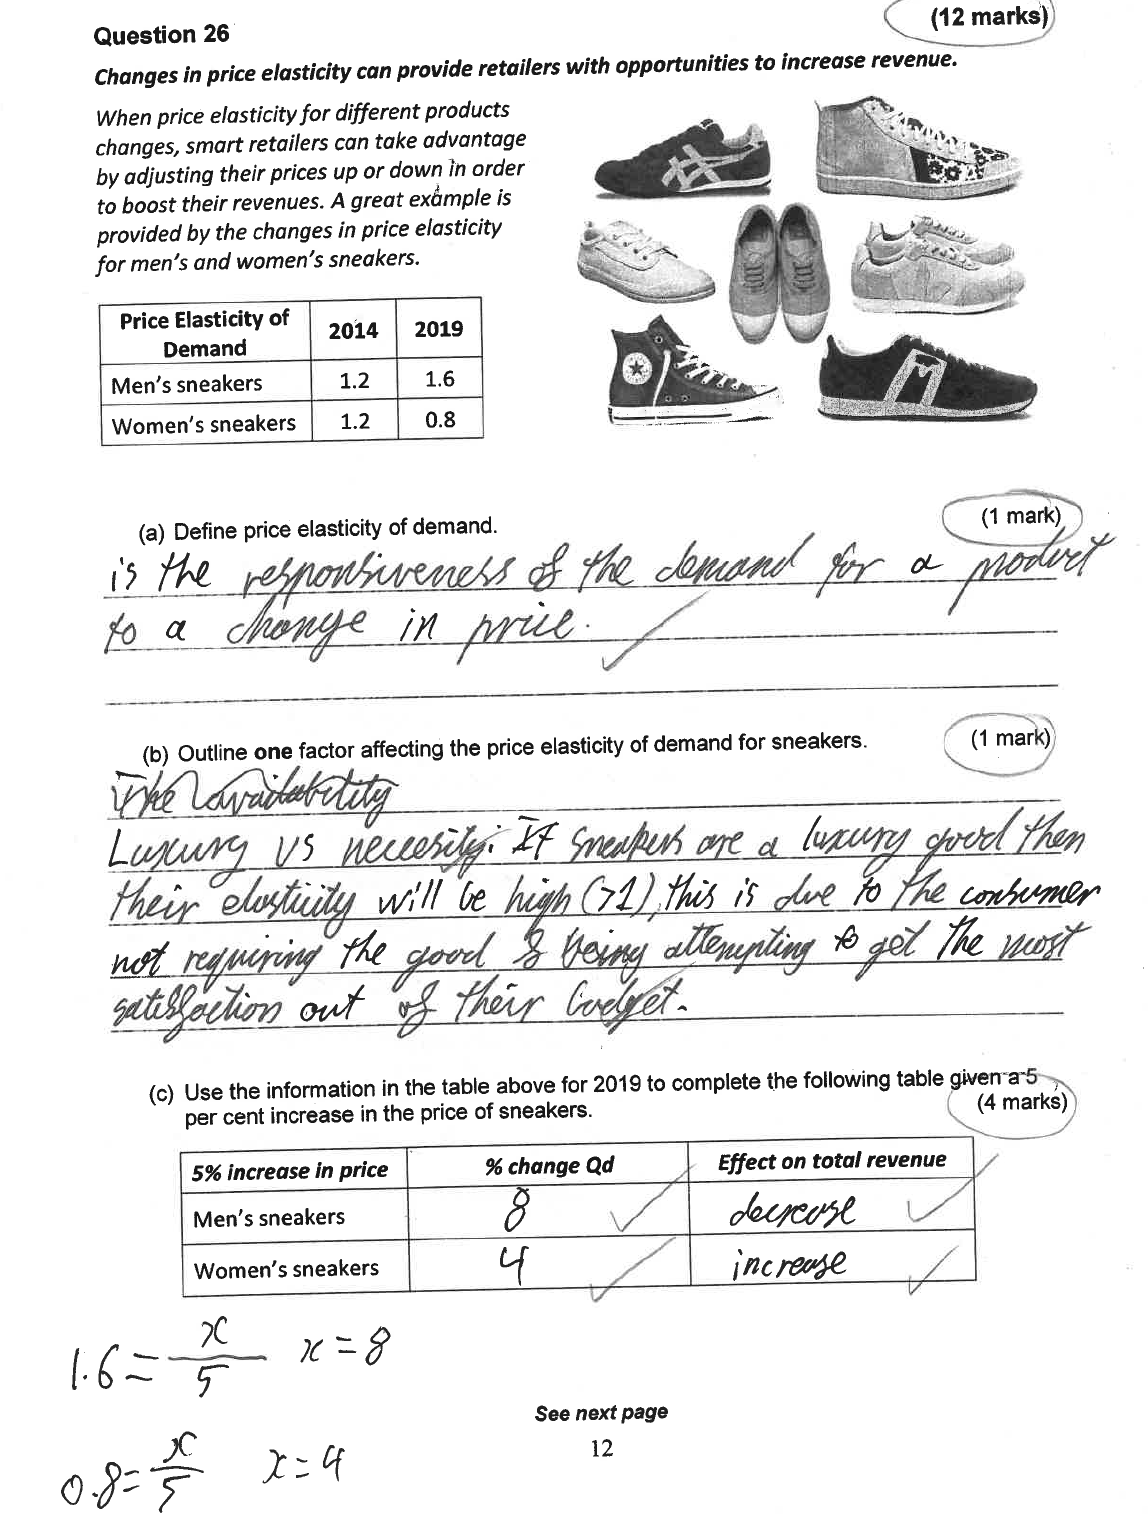 (12 marks)
Question 26
Changes in price elasticity can provide retailers with opportunities to increase revenue.
When price elasticity for different products
changes, smart retailers can take advantage
by adjusting their prices up or down in order
to boost their revenues. A great example is
provided by the changes in price elasticity
for men's and women's sneakers.
Price Elasticity of Demand 2014 2019
Men's sneakers 1.2 1.6
Women's sneakers 1.2 0.8
(a) Define price elasticity of demand. (1 mark)
is the responsiveness of the demand for a product
to a change in price.
(b) Outline one factor affecting the price elasticity of demand for sneakers. (1 mark)
The availability
Luxury vs neccesity: If sneakers are a luxury good then
their elasticity will be high (>1), this is due to the consumer
not requiring the good & being attempting to get the most
satisfaction out of their budget.
(c) Use the information in the table above for 2019 to complete the following table given a 5
per cent increase in the price of sneakers. (4 marks)
5% increase in price % change Qd Effect on total revenue
Men's sneakers 8 decrease
Women's sneakers 4 increase
1.6 = x/5 x = 8
See next page
12
0.8 = x/5 x = 4